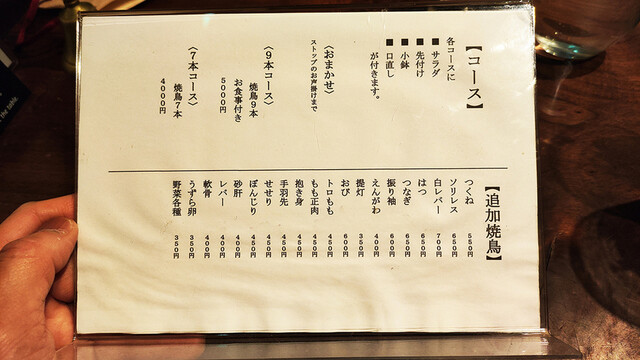 【コース】
各コースに
■サラダ
■先付け
■小鉢
■口直し
が付きます。
〈おまかせ〉
ストップのお声掛けまで
〈9本コース〉
焼鳥9本
お食事付き
5000円
〈7本コース〉
焼鳥7本
4000円
【追加焼鳥】
つくね 550円
ソリレス 650円
白レバー 700円
はつ 650円
つなぎ 650円
振り袖 650円
えんがわ 400円
提灯 350円
おび 600円
トロもも 450円
もも正肉 450円
抱き身 450円
手羽先 450円
せせり 450円
ぼんじり 450円
砂肝 400円
レバー 400円
軟骨 400円
うずら卵 350円
野菜各種 350円